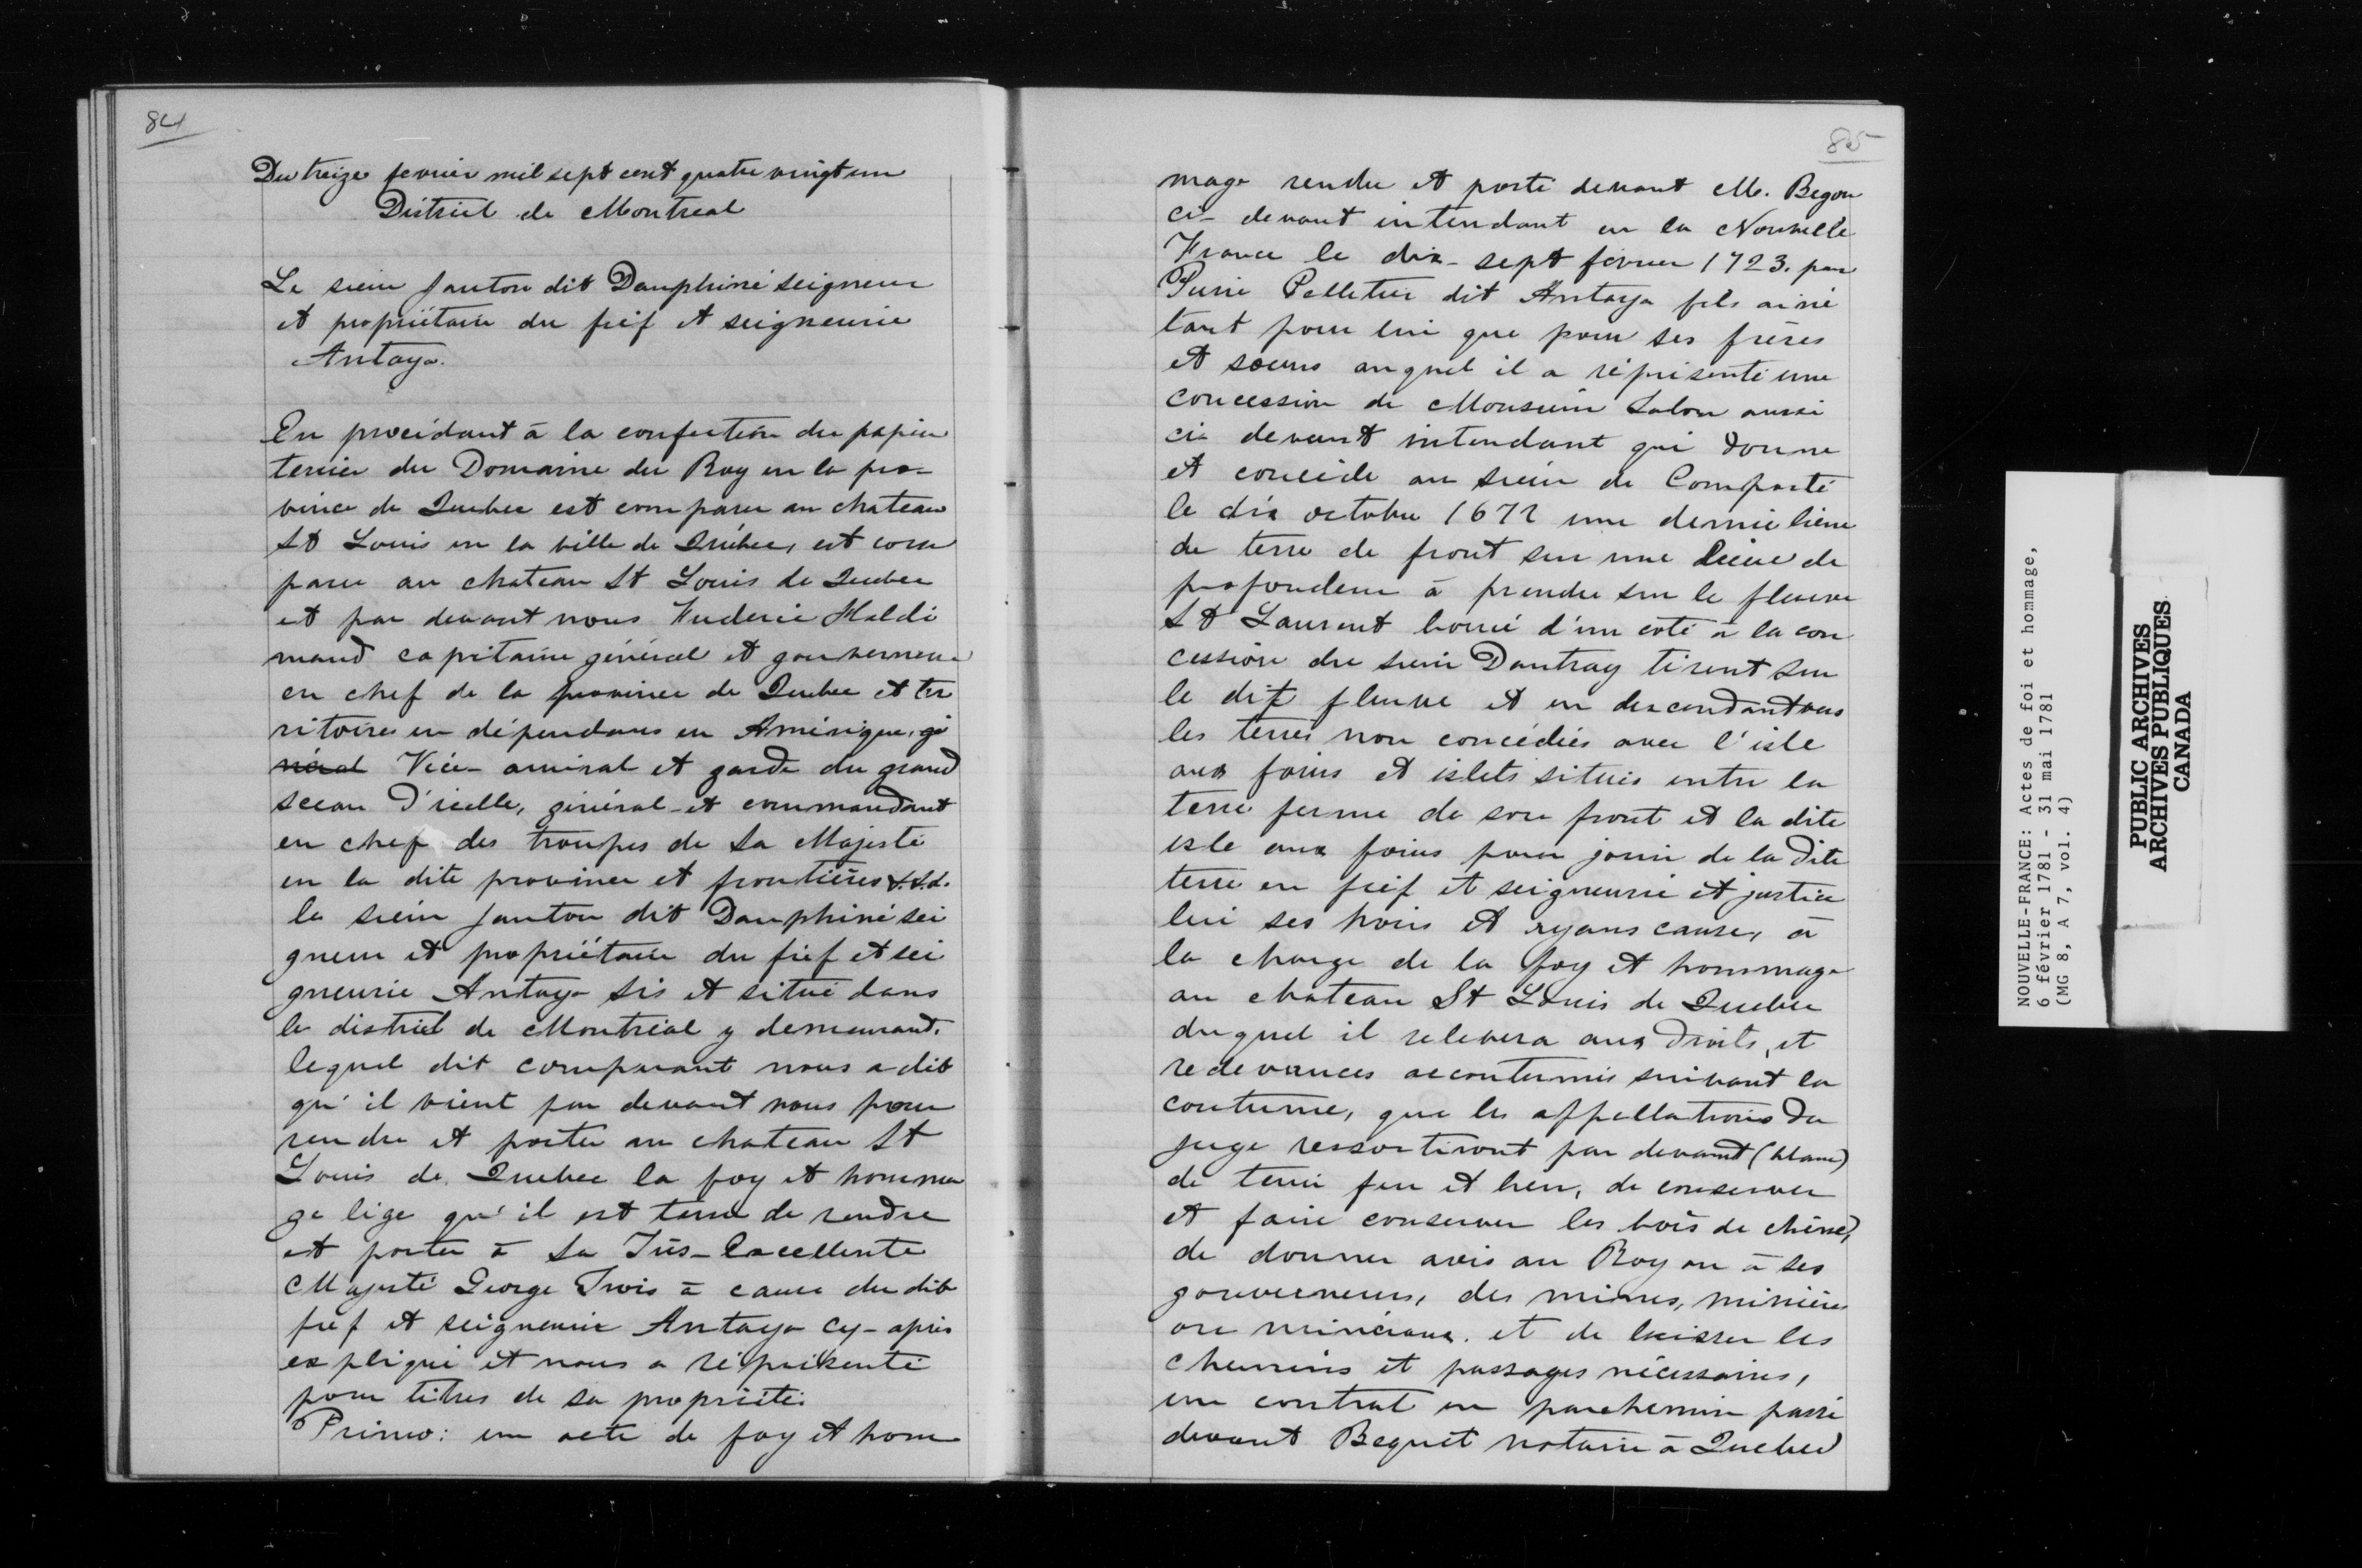 84
Du treize fevrier mil sept cent quatre vingt un
District de Montreal
Le sieur Janton dit Dauphiné seigneur
et propriétaire du fief et seigneurie
Antaya.
En procédant à la confection du papier
terrier du Domaine du Roy en la pro-
vince de Quebec est comparu au chateau
St Louis en la ville de Québec, est com
paru au chateau St Louis de Quebec
et par devant nous Frederic Haldi
mand capitaine général et gouverneur
en chef de la province de Quebec et ter
ritoires en dépendans en Amérique, gé
néral Vice-amiral et garde du grand
sceau d'icelle, général et commandant
en chef des troupes de Sa Majesté
en la dite province et frontières &.&.&.
le sieur Janton dit Dauphiné sei
gneur et propriétaire du fief et sei
gneurie Antaya sis et situé dans
le district de Montréal y demeurant.
lequel dit comparant nous a dit
qu'il vient par devant nous pour
rendre et porter au chateau St
Louis de Quebec la foy et homma
ge lige qu'il est tenu de rendre
et porter à Sa Très-Excellente
Majesté George Trois à cause du dit
fief et seigneurie Antaya cy-après
expliqué et nous a représenté
pour titres de sa propriété.
Primo: un acte de foy et hom
85
mage rendu et porté devant M. Begon
ci-devant intendant en la Nouvelle
France le dix-sept février 1723. par
Pierre Pelletier dit Antaya fils ainé
tant pour lui que pour ses frères
et soeurs auquel il a représenté une
concession de Monsieur Talon aussi
ci devant intendant qui donne
et concède au sieur de Comporté
le dix octobre 1672 une demie lieue
de terre de front sur une lieue de
profondeur à prendre sur le fleuve
St Laurent borné d'un coté à la con
cession du sieur Dautray tirent sur
le dit fleuve et en descendant vers
les terres non concédées avec l'isle
aux foins et islets situés entre la
terre ferme de son front et la dite
isle aux foins pour jouir de la dite
terre en fief et seigneurie et justice
lui ses hoirs et ayans cause, à
la charge de la foy et hommage
au chateau St Louis de Quebec
duquel il relevera aux droits, et
redevances accoutumés suivant la
coutume, que les appellations du
juge ressortiront par devant (blanc)
de tenir feu et lieu, de conserver
et faire conserver les bois de chêne,
de donner avis au Roy ou à ses
gouverneurs, des mines, minières
ou minéraux. et de laisser les
chemins et passages nécessaires,
un contrat en parchemin passé
devant Bequet notaire à Quebec
NOUVELLE-FRANCE: Actes de foi et hommage,
6 février 1781 - 31 mai 1781
(MG 8, A 7, vol. 4)
PUBLIC ARCHIVES
ARCHIVES PUBLIQUES
CANADA